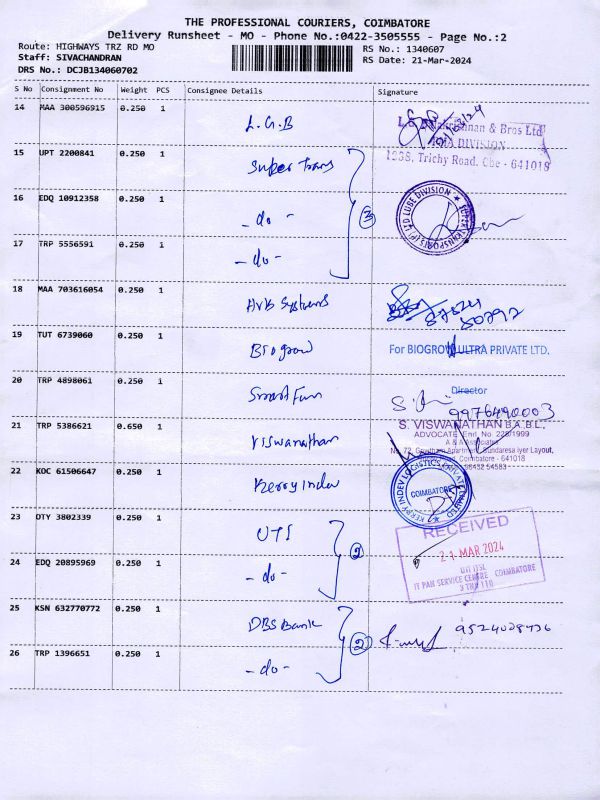 THE PROFESSIONAL COURIERS, COIMBATORE
Delivery Runsheet - MO - Phone No.:0422-3505555 - Page No.:2
Route: HIGHWAYS TRZ RD MO
RS No.: 1340607
Staff: SIVACHANDRAN
RS Date: 21-Mar-2024
DRS No.: DCJB134060702
S No Consignment No Weight PCS Consignee Details Signature
14 MAA 300596915 0.250 1 L.G.B
& Bros Ltd
DIVISION
1238, Trichy Road, Cbe - 641018
15 UPT 2200841 0.250 1 Super Trans
16 EDQ 10912358 0.250 1 - do - 3
LUBE DIVISION
17 TRP 5556591 0.250 1 - do -
18 MAA 703616054 0.250 1 Systems
87524
50292
19 TUT 6739060 0.250 1 Biogrow
For BIOGROW ULTRA PRIVATE LTD.
Director
20 TRP 4898061 0.250 1 Smart Fun
9976490003
21 TRP 5386621 0.650 1 Viswanathan
S. VISWANATHAN B.A.B.L.,
ADVOCATE Enrl. No. 228/1999
A & Associates
No. 72, Gowtham Apartment, Sundaresa Iyer Layout,
Coimbatore - 641018
98432 54583
22 KOC 61506647 0.250 1 Kerry Indev
KERRY INDEV LOGISTICS PRIVATE LIMITED
COIMBATORE
23 DTY 3802339 0.250 1 UTI
RECEIVED
21 MAR 2024
UTI ITSL
IT PAN SERVICE CENTRE COIMBATORE
24 EDQ 20895969 0.250 1 - do - 2
25 KSN 632770772 0.250 1 DBS Bank
9524028436
26 TRP 1396651 0.250 1 - do - 2